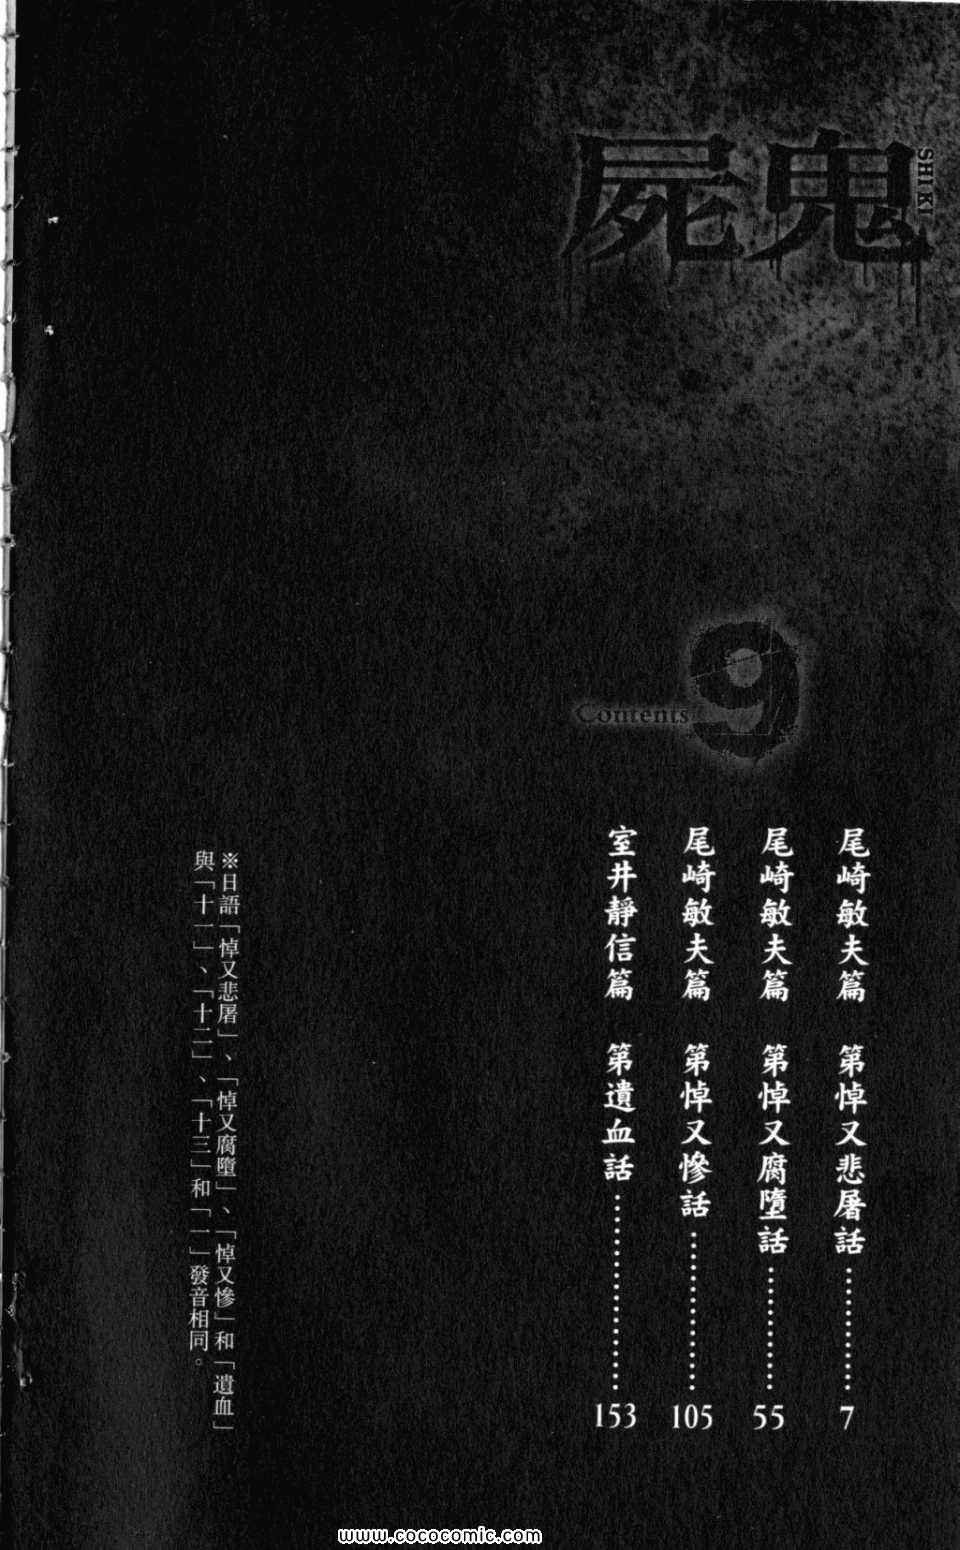 屍鬼
SHI KI
Contents
9
尾崎敏夫篇 第悼又悲屠話…………7
尾崎敏夫篇 第悼又腐墮話…………55
尾崎敏夫篇 第悼又慘話……………105
室井靜信篇 第遺血話………………153
※日語「悼又悲屠」、「悼又腐墮」、「悼又慘」和「遺血」
與「十一」、「十二」、「十三」和「一」發音相同。
www.cococomic.com